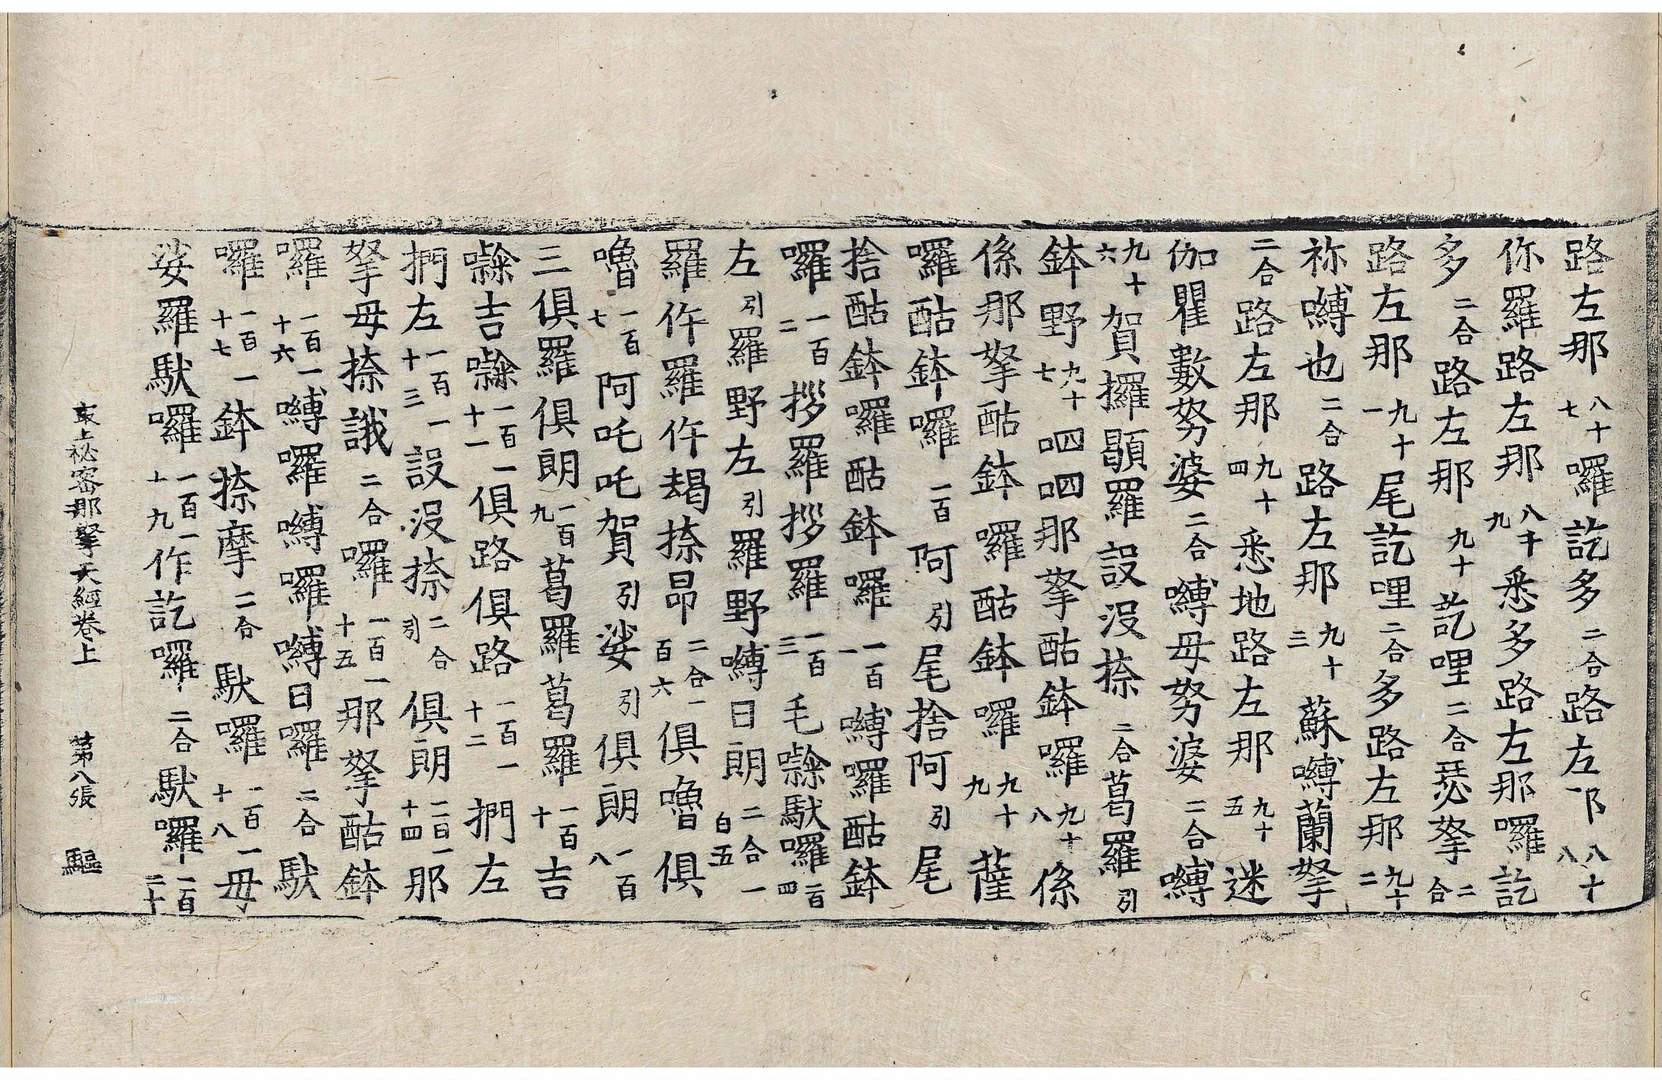 路左那八十七囉訖多二合路左那八十八
你羅路左那八十九悉多路左那囉訖
多二合路左那九十訖哩二合瑟拏二合
路左那九十一尾訖哩二合多路左那九十二
祢嚩也二合路左那九十三蘇嚩蘭拏
二合路左那九十四悉地路左那九十五迷
伽瞿數努婆二合嚩母努婆二合嚩
九十六賀攞顕羅設沒捺二合葛羅引
鉢野九十七呬呬那拏酤鉢囉九十八係
係那拏酤鉢囉酤鉢囉九十九薩
囉酤鉢囉一百阿引尾捨阿引尾
捨酤鉢囉酤鉢囉一百一嚩囉酤鉢
囉一百二拶羅拶羅一百三毛㘑馱囉一百四
左引羅野左引羅野嚩日朗二合一百五
羅仵羅仵朅捺昂二合一百六俱嚕俱
嚕一百七阿吒吒賀引娑引俱朗一百八
三俱羅俱朗一百九葛羅葛羅一百十吉
㘑吉㘑一百一十一俱路俱路一百一十二捫左
捫左一百一十三設沒捺二合引俱朗一百一十四那
拏母捺誐二合囉一百一十五那拏酤鉢
囉一百一十六嚩囉嚩囉嚩日囉二合馱
囉一百一十七鉢捺摩二合馱囉一百一十八母
娑羅馱囉一百一十九作訖囉二合馱囉一百二十
最上祕密那拏天經卷上 第八張 驅